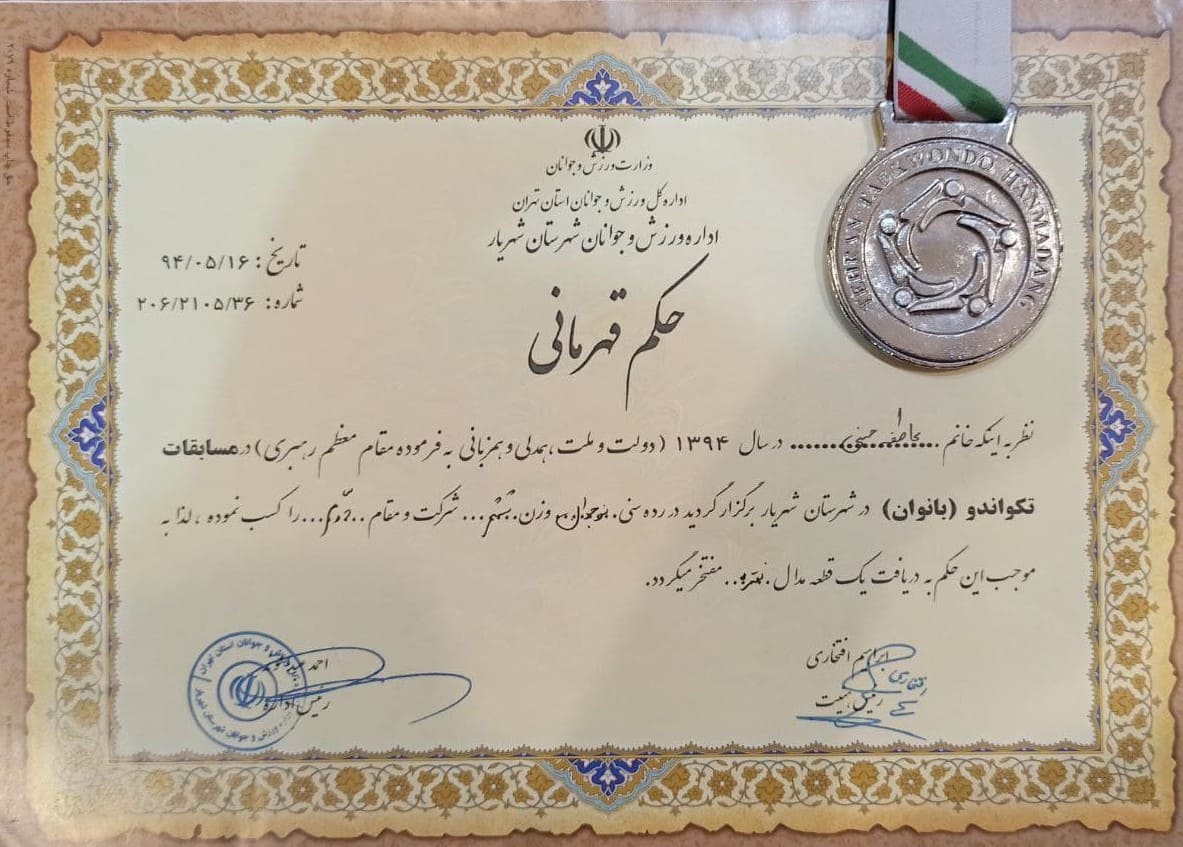 وزارت ورزش و جوانان
اداره کل ورزش و جوانان استان تهران
اداره ورزش و جوانان شهرستان شهریار
تاریخ: ۹۴/۰۵/۱۶
شماره: ۲۰۶/۲۱۰۵/۳۶
حکم قهرمانی
TEHRAN TAEKWONDO HANMADANG
نظر به اینکه خانم ... حسینی ... در سال ۱۳۹۴ (دولت و ملت، همدلی و همزبانی به فرموده مقام معظم رهبری) در مسابقات
تکواندو (بانوان) در شهرستان شهریار برگزار گردید در رده سنی .نوجوانان وزن .ششم... شرکت و مقام ..دوم... را کسب نموده ، لذا به
موجب این حکم به دریافت یک قطعه مدال .نقره.. مفتخر میگردد.
ابراهیم افتخاری
افتخاری
رئیس هیئت
احمد
رئیس اداره
ورزش و جوانان استان تهران
ورزش و جوانان شهرستان شهریار